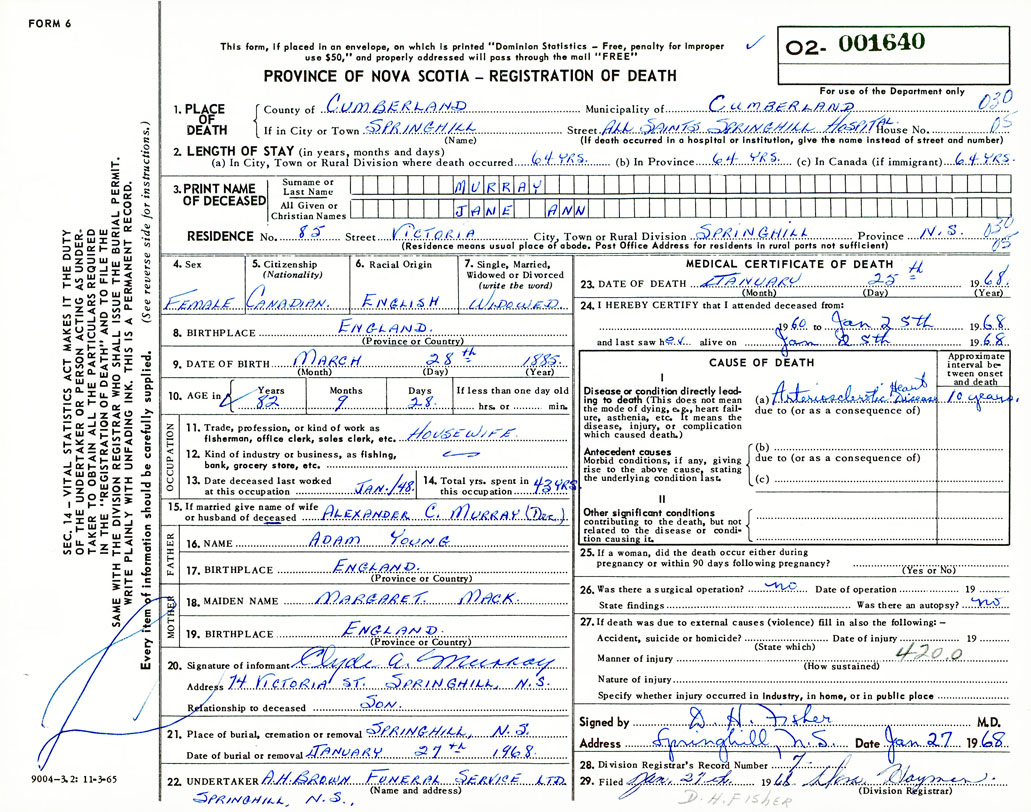 FORM 6
This form, if placed in an envelope, on which is printed "Dominion Statistics – Free, penalty for improper
use $50," and properly addressed will pass through the mail "FREE"
✓
O2- 001640
For use of the Department only
PROVINCE OF NOVA SCOTIA – REGISTRATION OF DEATH
030
1. PLACE OF DEATH
County of CUMBERLAND Municipality of CUMBERLAND
05
If in City or Town SPRINGHILL Street ALL SAINTS SPRINGHILL HOSPITAL House No.
(Name) (If death occurred in a hospital or institution, give the name instead of street and number)
2. LENGTH OF STAY (in years, months and days)
(a) In City, Town or Rural Division where death occurred 64 YRS. (b) In Province 64 YRS. (c) In Canada (if immigrant) 64 YRS.
3. PRINT NAME OF DECEASED
Surname or Last Name MURRAY
All Given or Christian Names JANE ANN
RESIDENCE No. 85 Street VICTORIA City, Town or Rural Division SPRINGHILL Province N.S. 030
05
(Residence means usual place of abode. Post Office Address for residents in rural parts not sufficient)
4. Sex
FEMALE
5. Citizenship
(Nationality)
CANADIAN.
6. Racial Origin
ENGLISH
7. Single, Married,
Widowed or Divorced
(write the word)
WIDOWED.
8. BIRTHPLACE ENGLAND.
(Province or Country)
9. DATE OF BIRTH MARCH 28th 1885.
(Month) (Day) (Year)
10. AGE in Years Months Days If less than one day old
82 9 28 hrs. or min.
OCCUPATION
11. Trade, profession, or kind of work as
fisherman, office clerk, sales clerk, etc. HOUSEWIFE.
12. Kind of industry or business, as fishing,
bank, grocery store, etc.
13. Date deceased last worked
at this occupation JAN./48.
14. Total yrs. spent in
this occupation 43 YRS.
15. If married give name of wife
or husband of deceased ALEXANDER C. MURRAY (Dec.)
FATHER
16. NAME ADAM YOUNG
17. BIRTHPLACE ENGLAND.
(Province or Country)
MOTHER
18. MAIDEN NAME MARGARET. MACK.
19. BIRTHPLACE ENGLAND.
(Province or Country)
20. Signature of informant Clyde A. Murray
Address 74 VICTORIA ST. SPRINGHILL, N.S.
Relationship to deceased SON.
21. Place of burial, cremation or removal SPRINGHILL, N.S.
Date of burial or removal JANUARY 27th 1968.
22. UNDERTAKER A.H. BROWN FUNERAL SERVICE LTD.
(Name and address)
SPRINGHILL, N.S.,
MEDICAL CERTIFICATE OF DEATH
23. DATE OF DEATH JANUARY 25th 1968.
(Month) (Day) (Year)
24. I HEREBY CERTIFY that I attended deceased from:
1960 to Jan 25th 1968
and last saw her alive on Jan 25th 1968.
CAUSE OF DEATH
Approximate
interval be-
tween onset
and death
I
Disease or condition directly lead-
ing to death (This does not mean
the mode of dying, e.g., heart fail-
ure, asthenia, etc. It means the
disease, injury, or complication
which caused death.)
(a) Arteriosclerotic Heart Disease 10 years.
due to (or as a consequence of)
Antecedent causes
Morbid conditions, if any, giving
rise to the above cause, stating
the underlying condition last.
(b)
due to (or as a consequence of)
(c)
II
Other significant conditions
contributing to the death, but not
related to the disease or condi-
tion causing it.
25. If a woman, did the death occur either during
pregnancy or within 90 days following pregnancy?
(Yes or No)
26. Was there a surgical operation? no Date of operation 19
State findings Was there an autopsy? no
27. If death was due to external causes (violence) fill in also the following: –
Accident, suicide or homicide? Date of injury 19
(State which)
Manner of injury 420.0
(How sustained)
Nature of injury
Specify whether injury occurred in industry, in home, or in public place
Signed by D. H. Fisher M.D.
Address Springhill, N.S. Date Jan 27 1968
28. Division Registrar's Record Number 7
29. Filed Jan. 27th 1968
(Division Registrar)
D.H. FISHER
SEC. 14 – VITAL STATISTICS ACT MAKES IT THE DUTY
OF THE UNDERTAKER OR PERSON ACTING AS UNDER-
TAKER TO OBTAIN ALL THE PARTICULARS REQUIRED
IN THE "REGISTRATION OF DEATH" AND TO FILE THE
SAME WITH THE DIVISION REGISTRAR WHO SHALL ISSUE THE BURIAL PERMIT.
WRITE PLAINLY WITH UNFADING INK. THIS IS A PERMANENT RECORD.
Every item of information should be carefully supplied. (See reverse side for instructions.)
9004–3.2: 11-3-65